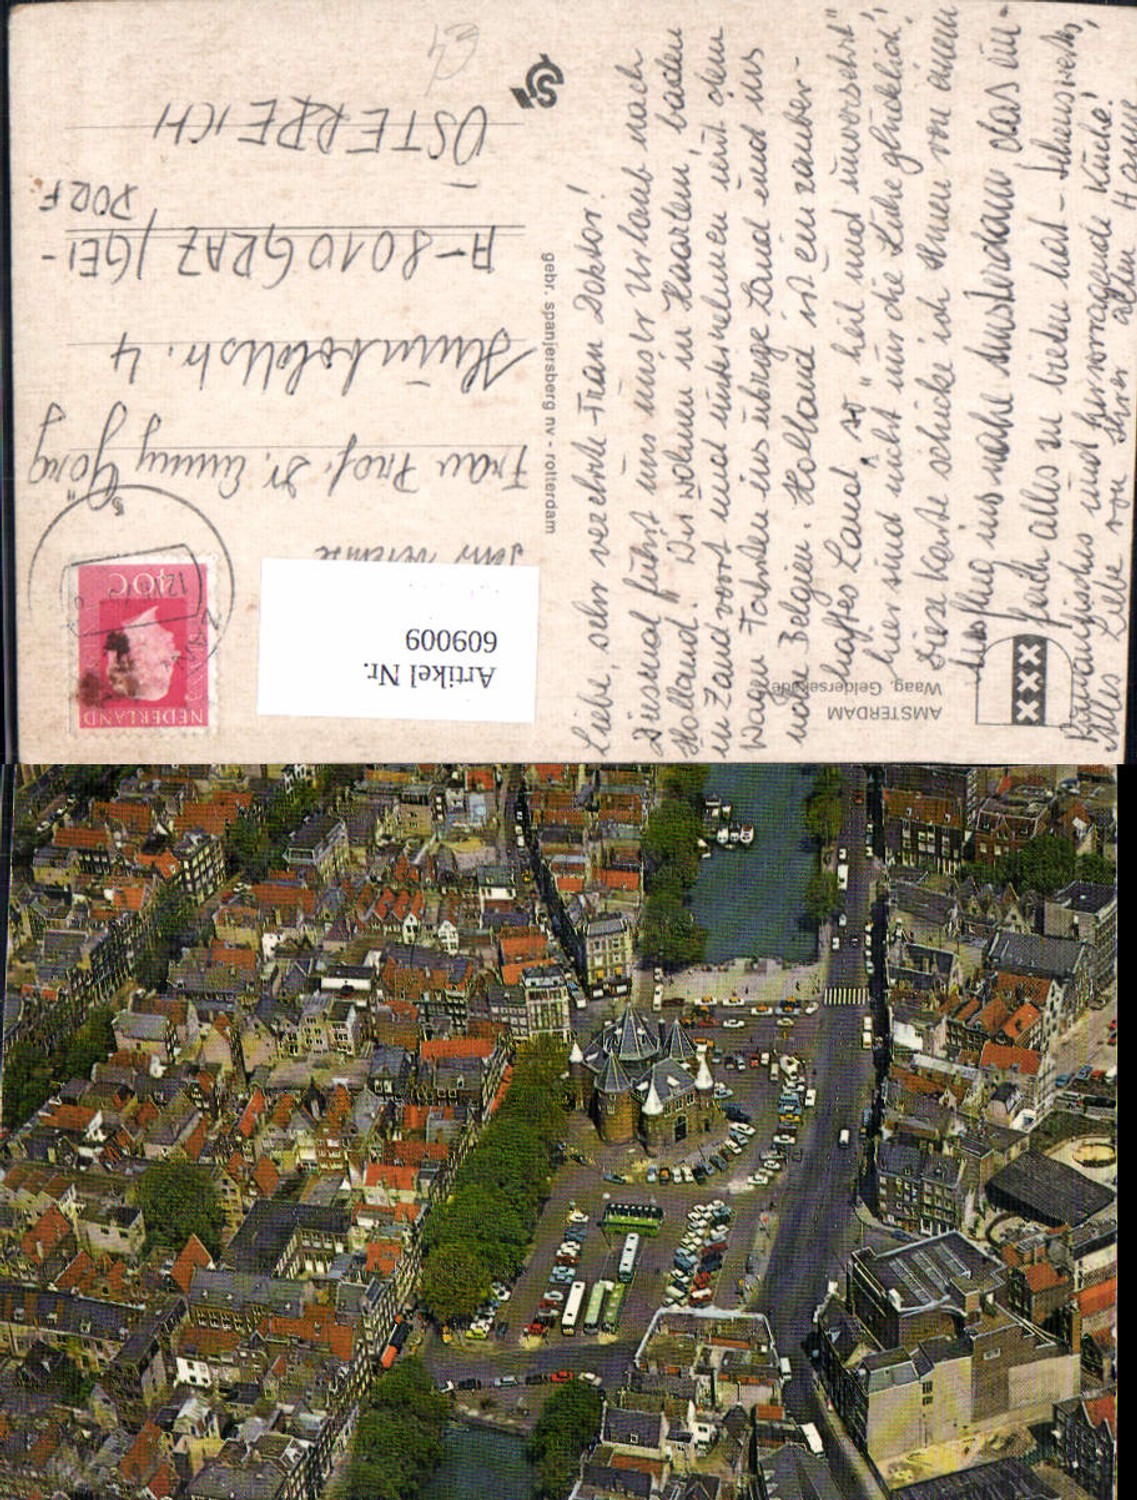 AMSTERDAM
Waag, Geldersekade
Liebe, sehr verehrte Frau Doktor!
Diesmal führt uns unser Urlaub nach
Holland. Wir wohnen in Haarlem, baden
in Zandvoort und unternehmen mit dem
Wagen Fahrten ins übrige Land und ins
nahe Belgien. Holland ist ein zauber-
haftes Land, so "heil und unversehrt"
hier sind nicht nur die Kühe glücklich!
Diese Karte schicke ich Ihnen von einem
Ausflug ins nahe Amsterdam, das ein-
fach alles zu bieten hat - Sehenswertes,
und hervorragende Küche!
Alles Liebe von Ihrer alten
gebr. spanjersberg nv - rotterdam
NEDERLAND
40c
Artikel Nr.
609009
Frau Prof. Dr. Emmy Göng
Humboldtstr. 4
A-8010 GRAZ / GEI-
DORF
ÖSTERREICH